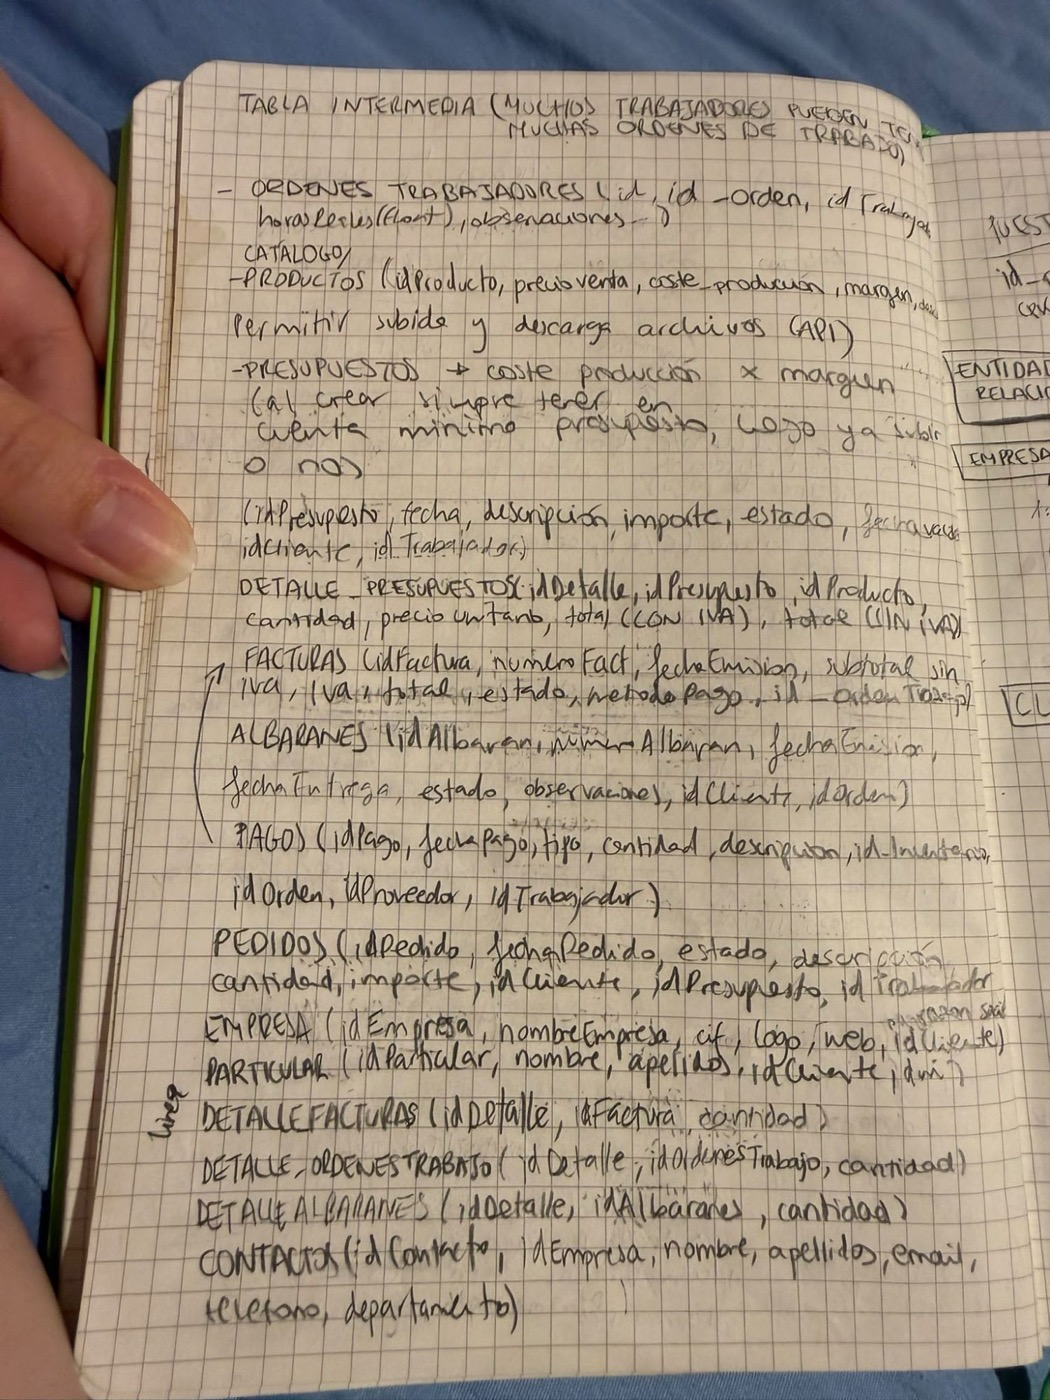 TABLA INTERMEDIA (MUCHOS TRABAJADORES PUEDEN
MUCHAS ORDENES DE TRABADO)
- ORDENES TRABAJADORES (id, id_orden, idTrabajad
horasReales(float), observaciones...)
CATALOGO/
-PRODUCTOS (idProducto, precioventa, coste_producción, margen,
Permitir subida y descarga archivos (API)
-PRESUPUESTOS → coste producción x marguen
(al crear siempre tener en
cuenta minimo presupuesto, luego ya subir
o no)
(idPresupesto, fecha, descripción, importe, estado,
idCliente, id_Trabajador)
DETALLE_PRESUPUESTOS(idDetalle, idPresupesto, idProducto,
cantidad, precio unitario, total (CON IVA), total (SIN IVA)
FACTURAS (idFactura, numeroFact, fechaEmision, subtotal sin
iva, iva, total, estado, metodoPago, id_orden
ALBARANES (idAlbaran, numeroAlbaran, fechaEmision,
fechaEntrega, estado, observaciones, idCliente, idorden)
PAGOS (idPago, fechaPago, tipo, cantidad, descripcion, id_Inventario,
idOrden, idProveedor, idTrabajador)
PEDIDOS (idPedido, fechaPedido, estado, descripción
cantidad, importe, idCliente, idPresupuesto, idTrabajador
razon
EMPRESA (idEmpresa, nombreEmpresa, cif, logo, web, idCliente)
PARTICULAR (idParticular, nombre, apellidos, idCliente, dni)
linea
DETALLEFACTURAS (idDetalle, idFactura, cantidad)
DETALLE_ORDENESTRABAJO (idDetalle, idOrdenesTrabajo, cantidad)
DETALLE ALBARANES (idDetalle, idAlbaranes, cantidad)
CONTACTOS (idContacto, idEmpresa, nombre, apellidos, email,
telefono, departamento)
id_
ENTIDAD
RELACI
EMPRESA
CL